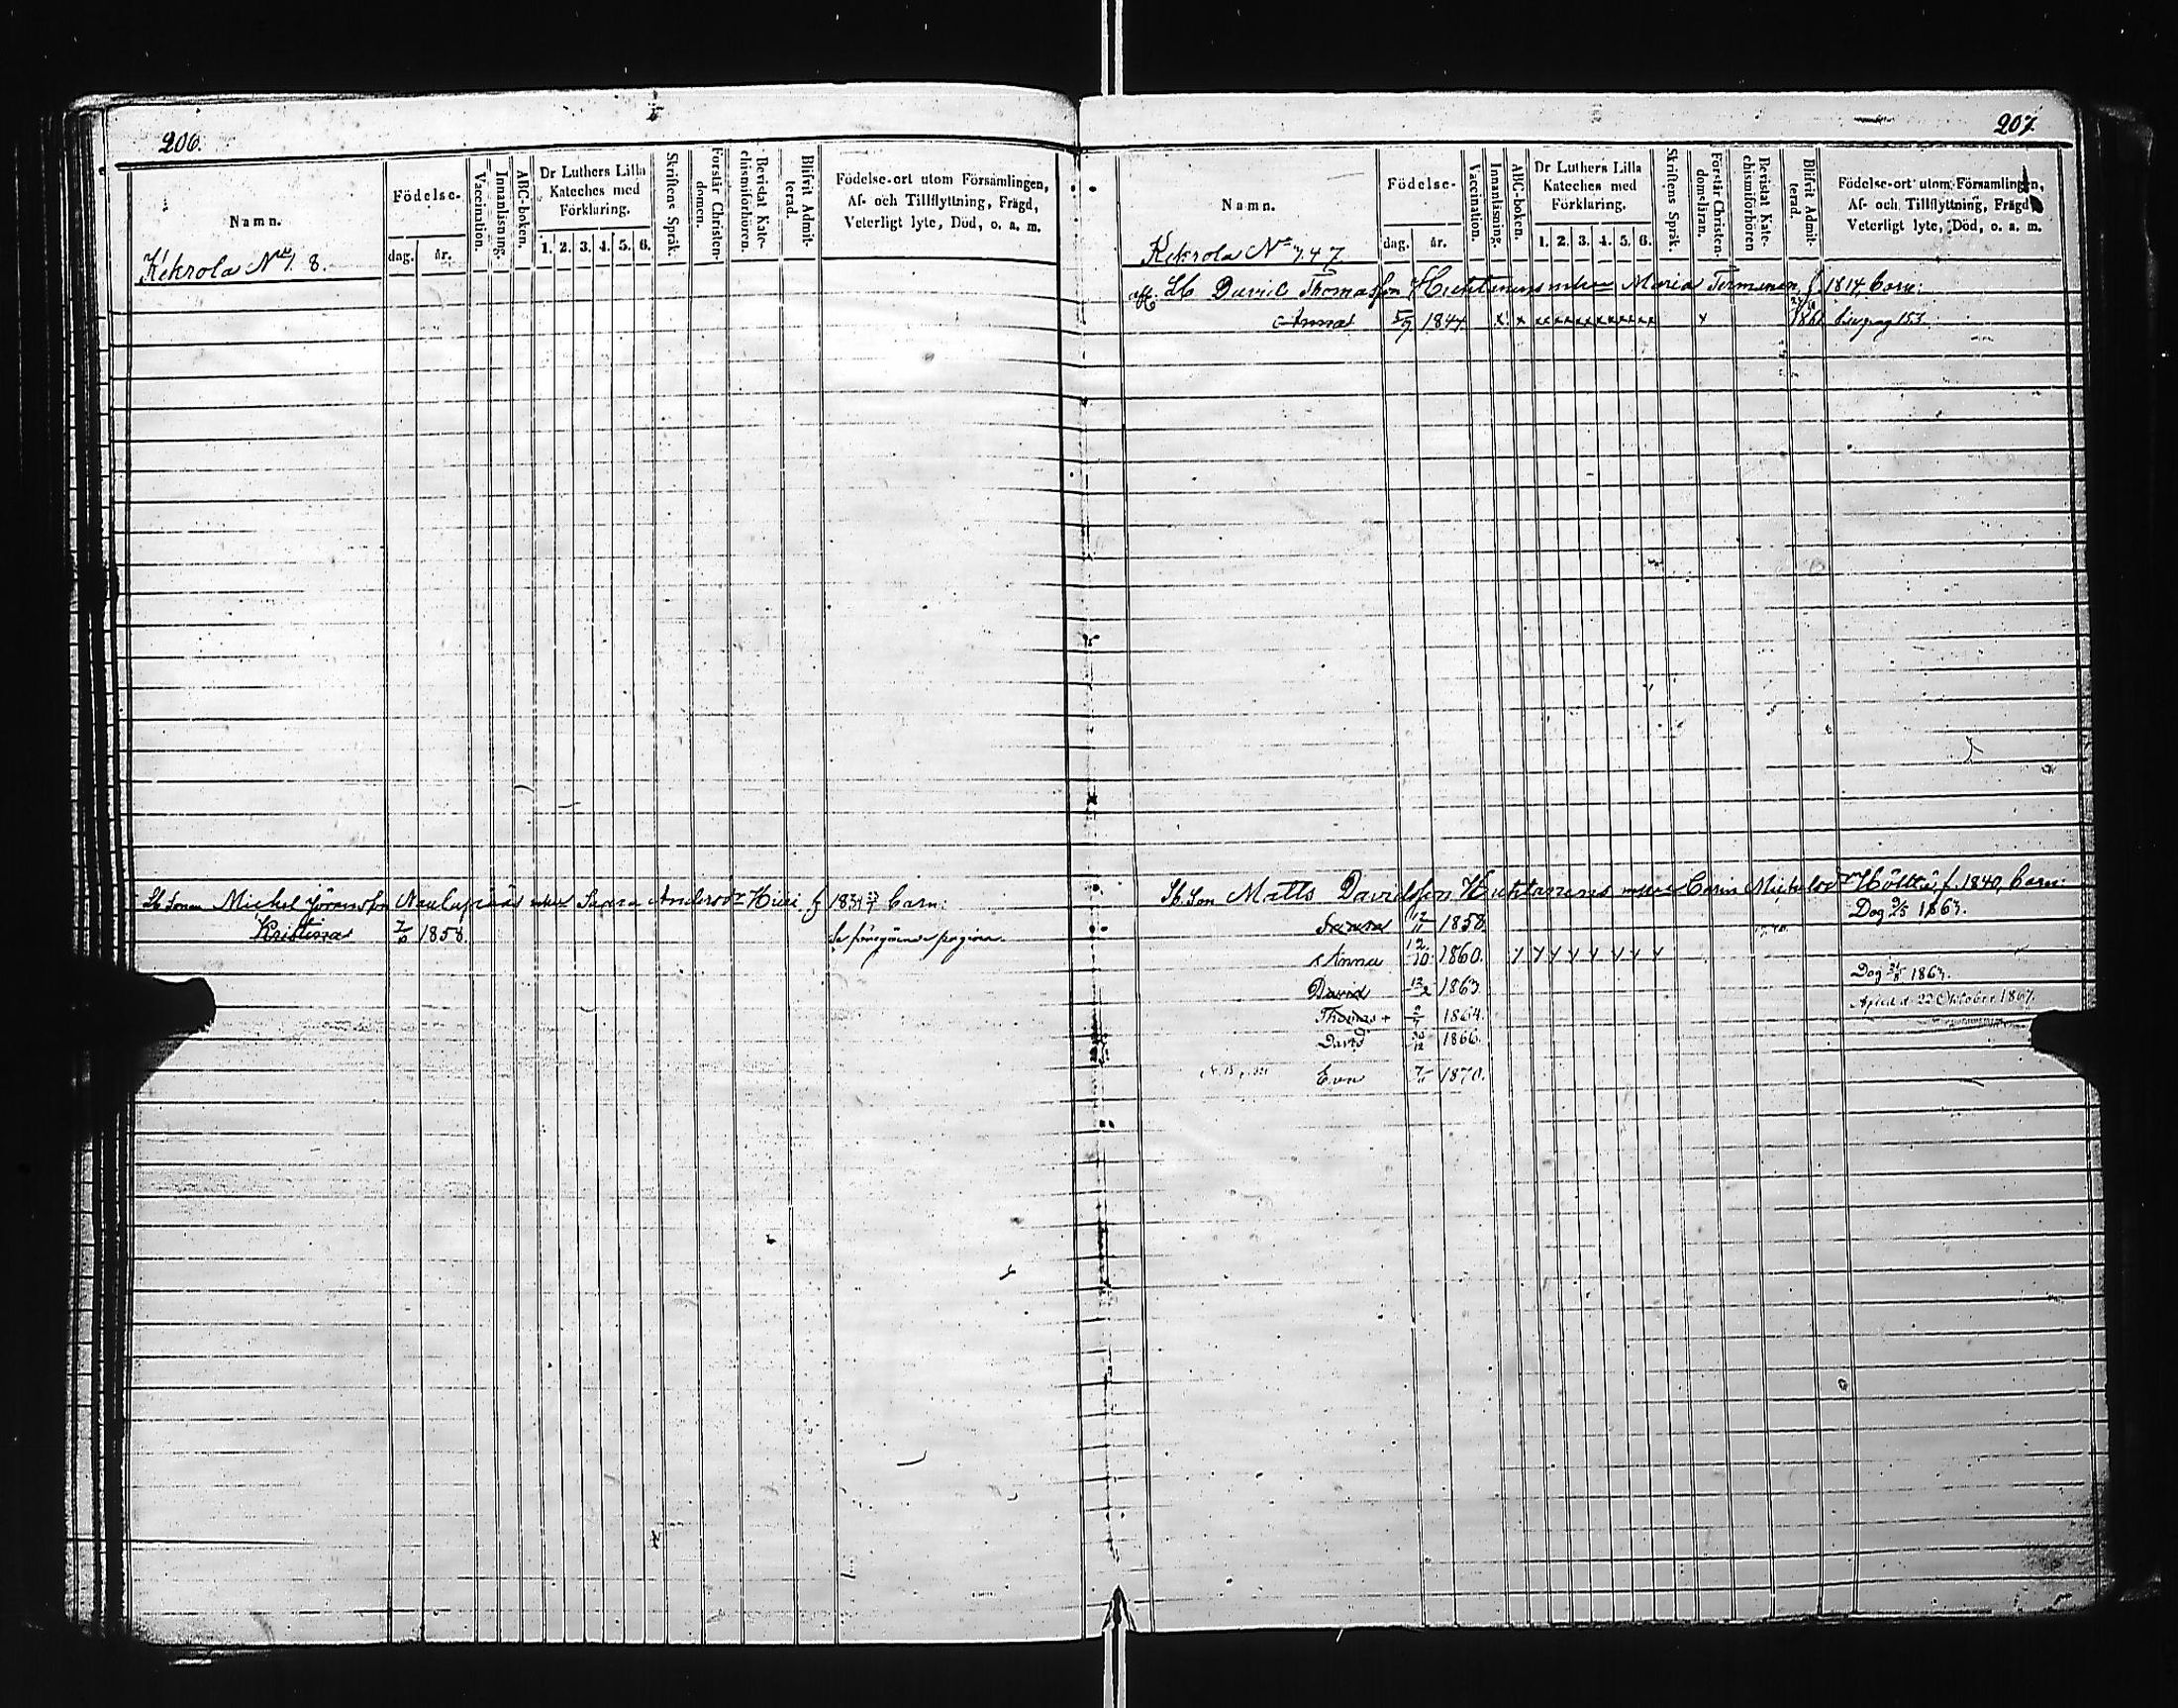 206.
Namn.
Födelse-
dag.
år.
Vaccination.
Innanläsning.
ABC-boken.
Dr Luthers Lilla
Kateches med
Förklaring.
1. 2. 3. 4. 5. 6.
Skriftens Språk.
Förstår Christen-
domen.
Bevistat Kate-
chismiförhören.
Blifvit Admit-
terad.
Födelse-ort utom Församlingen,
Af- och Tillflyttning, Frägd,
Veterligt lyte, Död, o. a. m.
Kekrola No 1. 8.
Sb Sonen Michel Göransson Naulapää Andersdr Hiiri f 1834 barn:
Kristina 1858. Se föregående pagina.
207.
Namn.
Födelse-
dag.
år.
Vaccination.
Innanläsning.
ABC-boken.
Dr Luthers Lilla
Kateches med
Förklaring.
1. 2. 3. 4. 5. 6.
Skriftens Språk.
Förstår Christen-
domsläran.
Bevistat Kate-
chismiförhören
Blifvit Admit-
terad.
Födelse-ort utom Församlingen,
Af- och Tillflyttning, Frägd,
Veterligt lyte, Död, o. a. m.
Kekrola No 1. 4 7.
Sb David Thomasson Huhtanens Maria Termonen, f. 1814 barn:
Anna 5/9 1844 x x xx xx xx xx xx xx x 1861 pag 153.
Sb. Son Matts Davidsson Huhtanens Carin Michelsdr Hölttä f. 1840, barn:
12/11 1858. Dog 9/5 1863.
Anna 12/10 1860.
David 13/2 1863 Dog 1863.
Thomas + 2/7 1864. 22 Oktober 1867.
David 30/12 1866.
Eva 7/11 1870.